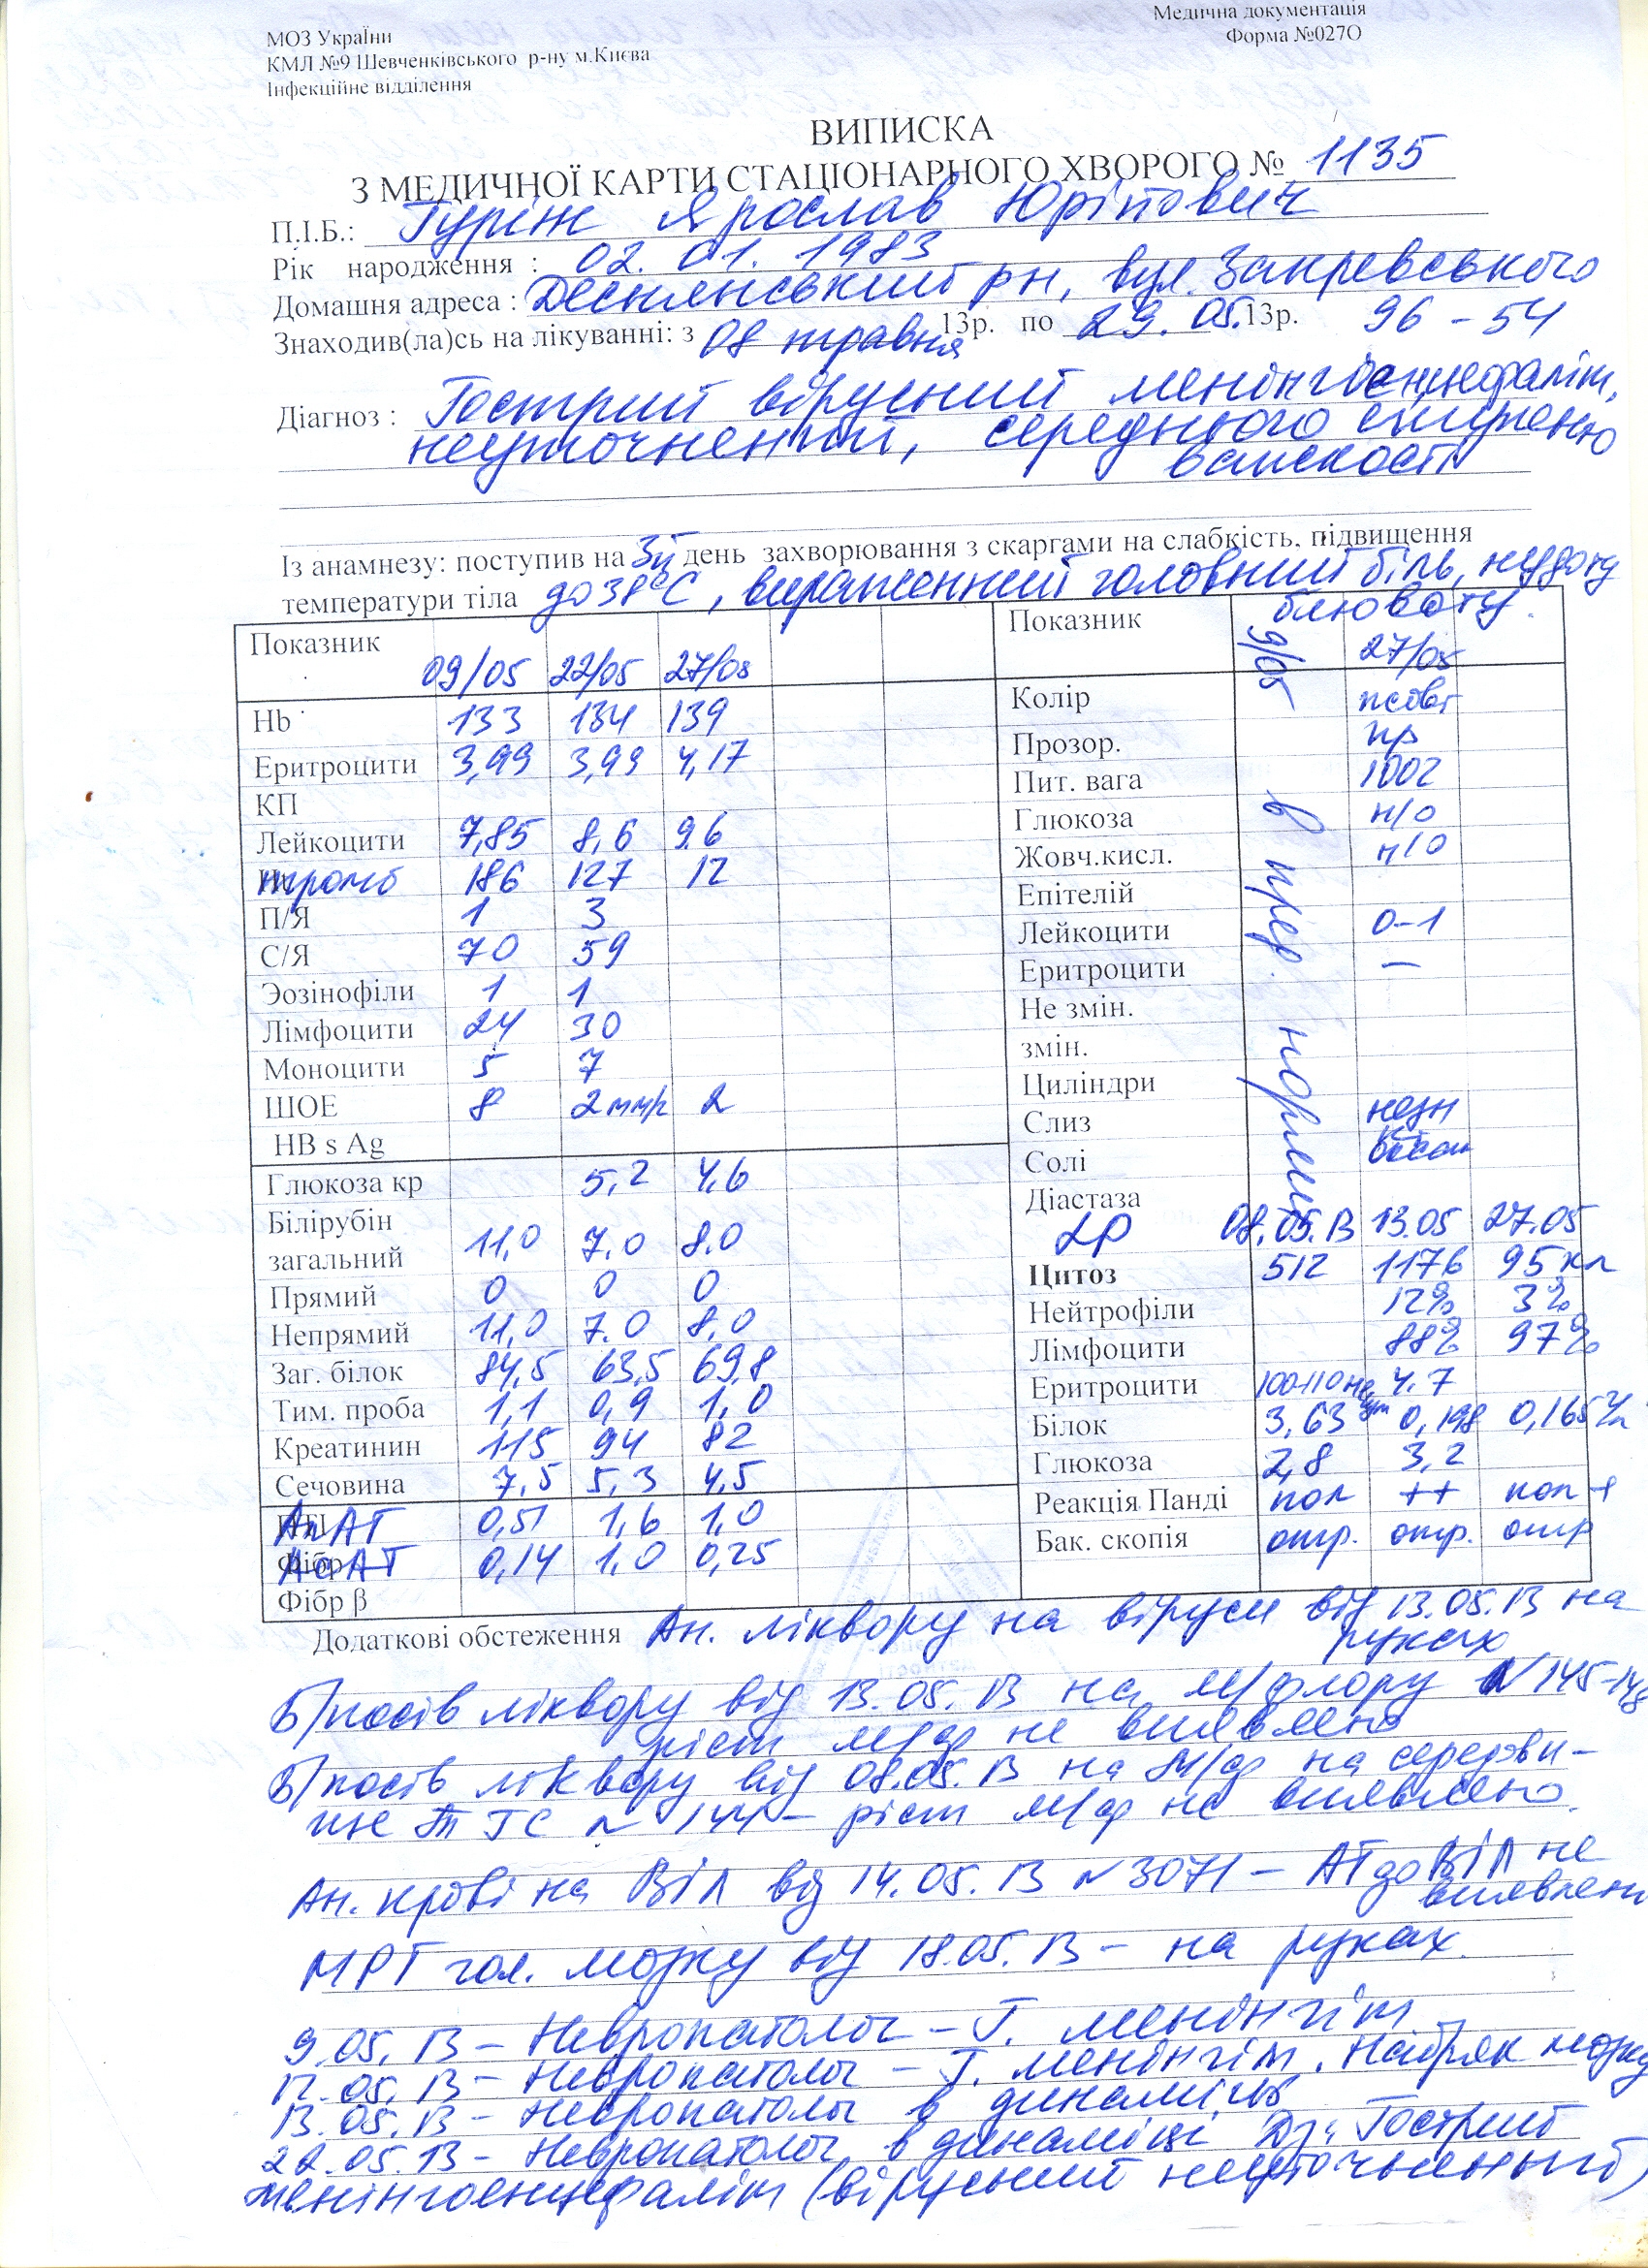 Медична документація
Форма №027О
МОЗ України
КМЛ №9 Шевченківського р-ну м.Києва
Інфекційне відділення
ВИПИСКА
З МЕДИЧНОЇ КАРТИ СТАЦІОНАРНОГО ХВОРОГО № 1135
П.І.Б.: Гуріж Ярослав Юрійович
Рік народження : 02. 01. 1983
Домашня адреса : Деснянський рн, вул. Закревського
96 - 54
Знаходив(ла)сь на лікуванні: з 08 травня 13р. по 29. 05. 13р.
Діагноз : Гострий вірусний менінгоенцефаліт,
неуточнений, середнього ступеню
важкості
Із анамнезу: поступив на 3й день захворювання з скаргами на слабкість, підвищення
температури тіла до 38°С, виражений головний біль, нудоту
блювоту.
Показник 09/05 22/05 27/05 Показник 9/05 27/05
Hb 133 134 139 Колір
Еритроцити 3,99 3,99 4,17 Прозор. пр
КП Пит. вага 1002
Лейкоцити 7,85 8,6 9,6 Глюкоза н/о
тромб 186 127 12 Жовч.кисл. н/о
П/Я 1 3 Епітелій
С/Я 70 59 Лейкоцити 0-1
Эозінофіли 1 1 Еритроцити –
Лімфоцити 24 30 Не змін.
Моноцити 5 7 змін.
ШОЕ 8 2 мм/г 2 Циліндри
HB s Ag Слиз незн
Глюкоза кр 5,2 4,6 Солі
Діастаза
в пред. норми
Білірубін
загальний 11,0 7,0 8,0 LP 08.05.13 13.05 27.05
Прямий 0 0 0 Цитоз 512 1176 95 кл
Непрямий 11,0 7,0 8,0 Нейтрофіли 12% 3%
Заг. білок 84,5 63,5 69,8 Лімфоцити 88% 97%
Тим. проба 1,1 0,9 1,0 Еритроцити 100-110 4-7
Креатинин 115 94 82 Білок 3,63 0,198 0,165 г/л
Сечовина 7,5 5,3 4,5 Глюкоза 2,8 3,2
АлАТ 0,51 1,6 1,0 Реакція Панді пол ++ пол +
АсАТ 0,14 1,0 0,25 Бак. скопія отр. отр. отр
Фібр β
Додаткові обстеження Ан. ліквору на віруси від 13.05.13 на
руках
Б/посів ліквору від 13.05.13 на м/флору N 145-148
ріст м/ф не виявлено
Б/посів ліквору від 08.05.13 на м/ф на середови-
ще ТГС N 144 – ріст м/ф не виявлено.
Ан. крові на ВІЛ від 14.05.13 N 3071 – АТ до ВІЛ не
виявлені
МРТ гол. мозку від 18.05.13 – на руках.
9.05.13 – Невропатолог – Г. менінгіт
12.05.13 – Невропатолог – Г. менінгіт. Набряк мозку
13.05.13 – Невропатолог в динаміці
22.05.13 – Невропатолог в динаміці Дз: Гострий
менінгоенцефаліт (вірусний неуточнений)